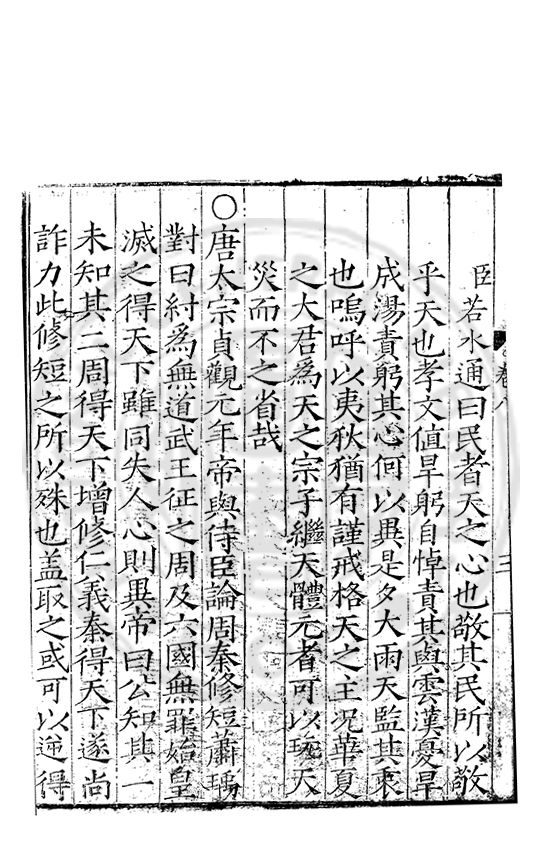 臣若水通曰民者天之心也敬其民所以敬
乎天也孝文值旱躬自悼責其與雲漢憂旱
成湯責躬其心何以異是夕大雨天監其衷
也嗚呼以夷狄猶有謹戒格天之主況華夏
之大君為天之宗子繼天體元者可以玩天
災而不之省哉
○唐太宗貞觀元年帝與侍臣論周秦修短蕭瑀
對曰紂為無道武王征之周及六國無罪始皇
滅之得天下雖同失人心則異帝曰公知其一
未知其二周得天下增修仁義秦得天下遂尚
詐力此修短之所以殊也盖取之或可以逆得
卷八
三